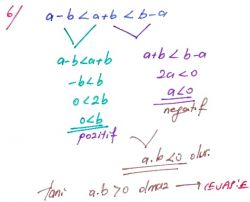 6/
a-b<a+b<b-a
a-b<a+b
-b<b
0<2b
0<b
pozitif
a+b<b-a
2a<0
a<0
negatif
a.b<0 olur.
Yani a.b>0 olmaz → CEVAP: E